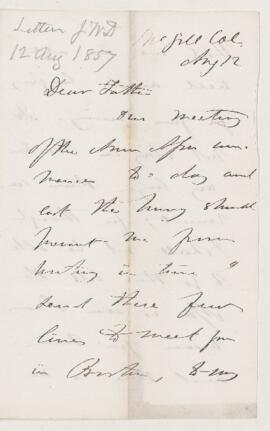 Letter JWD
12 Aug 1857
McGill Col.
Aug 12
Dear Father
Our meeting
of the Amn Assn com-
mences to-day and
lest the hurry should
prevent me from
writing in time I
send these few
lines to meet you
in Boston, & my